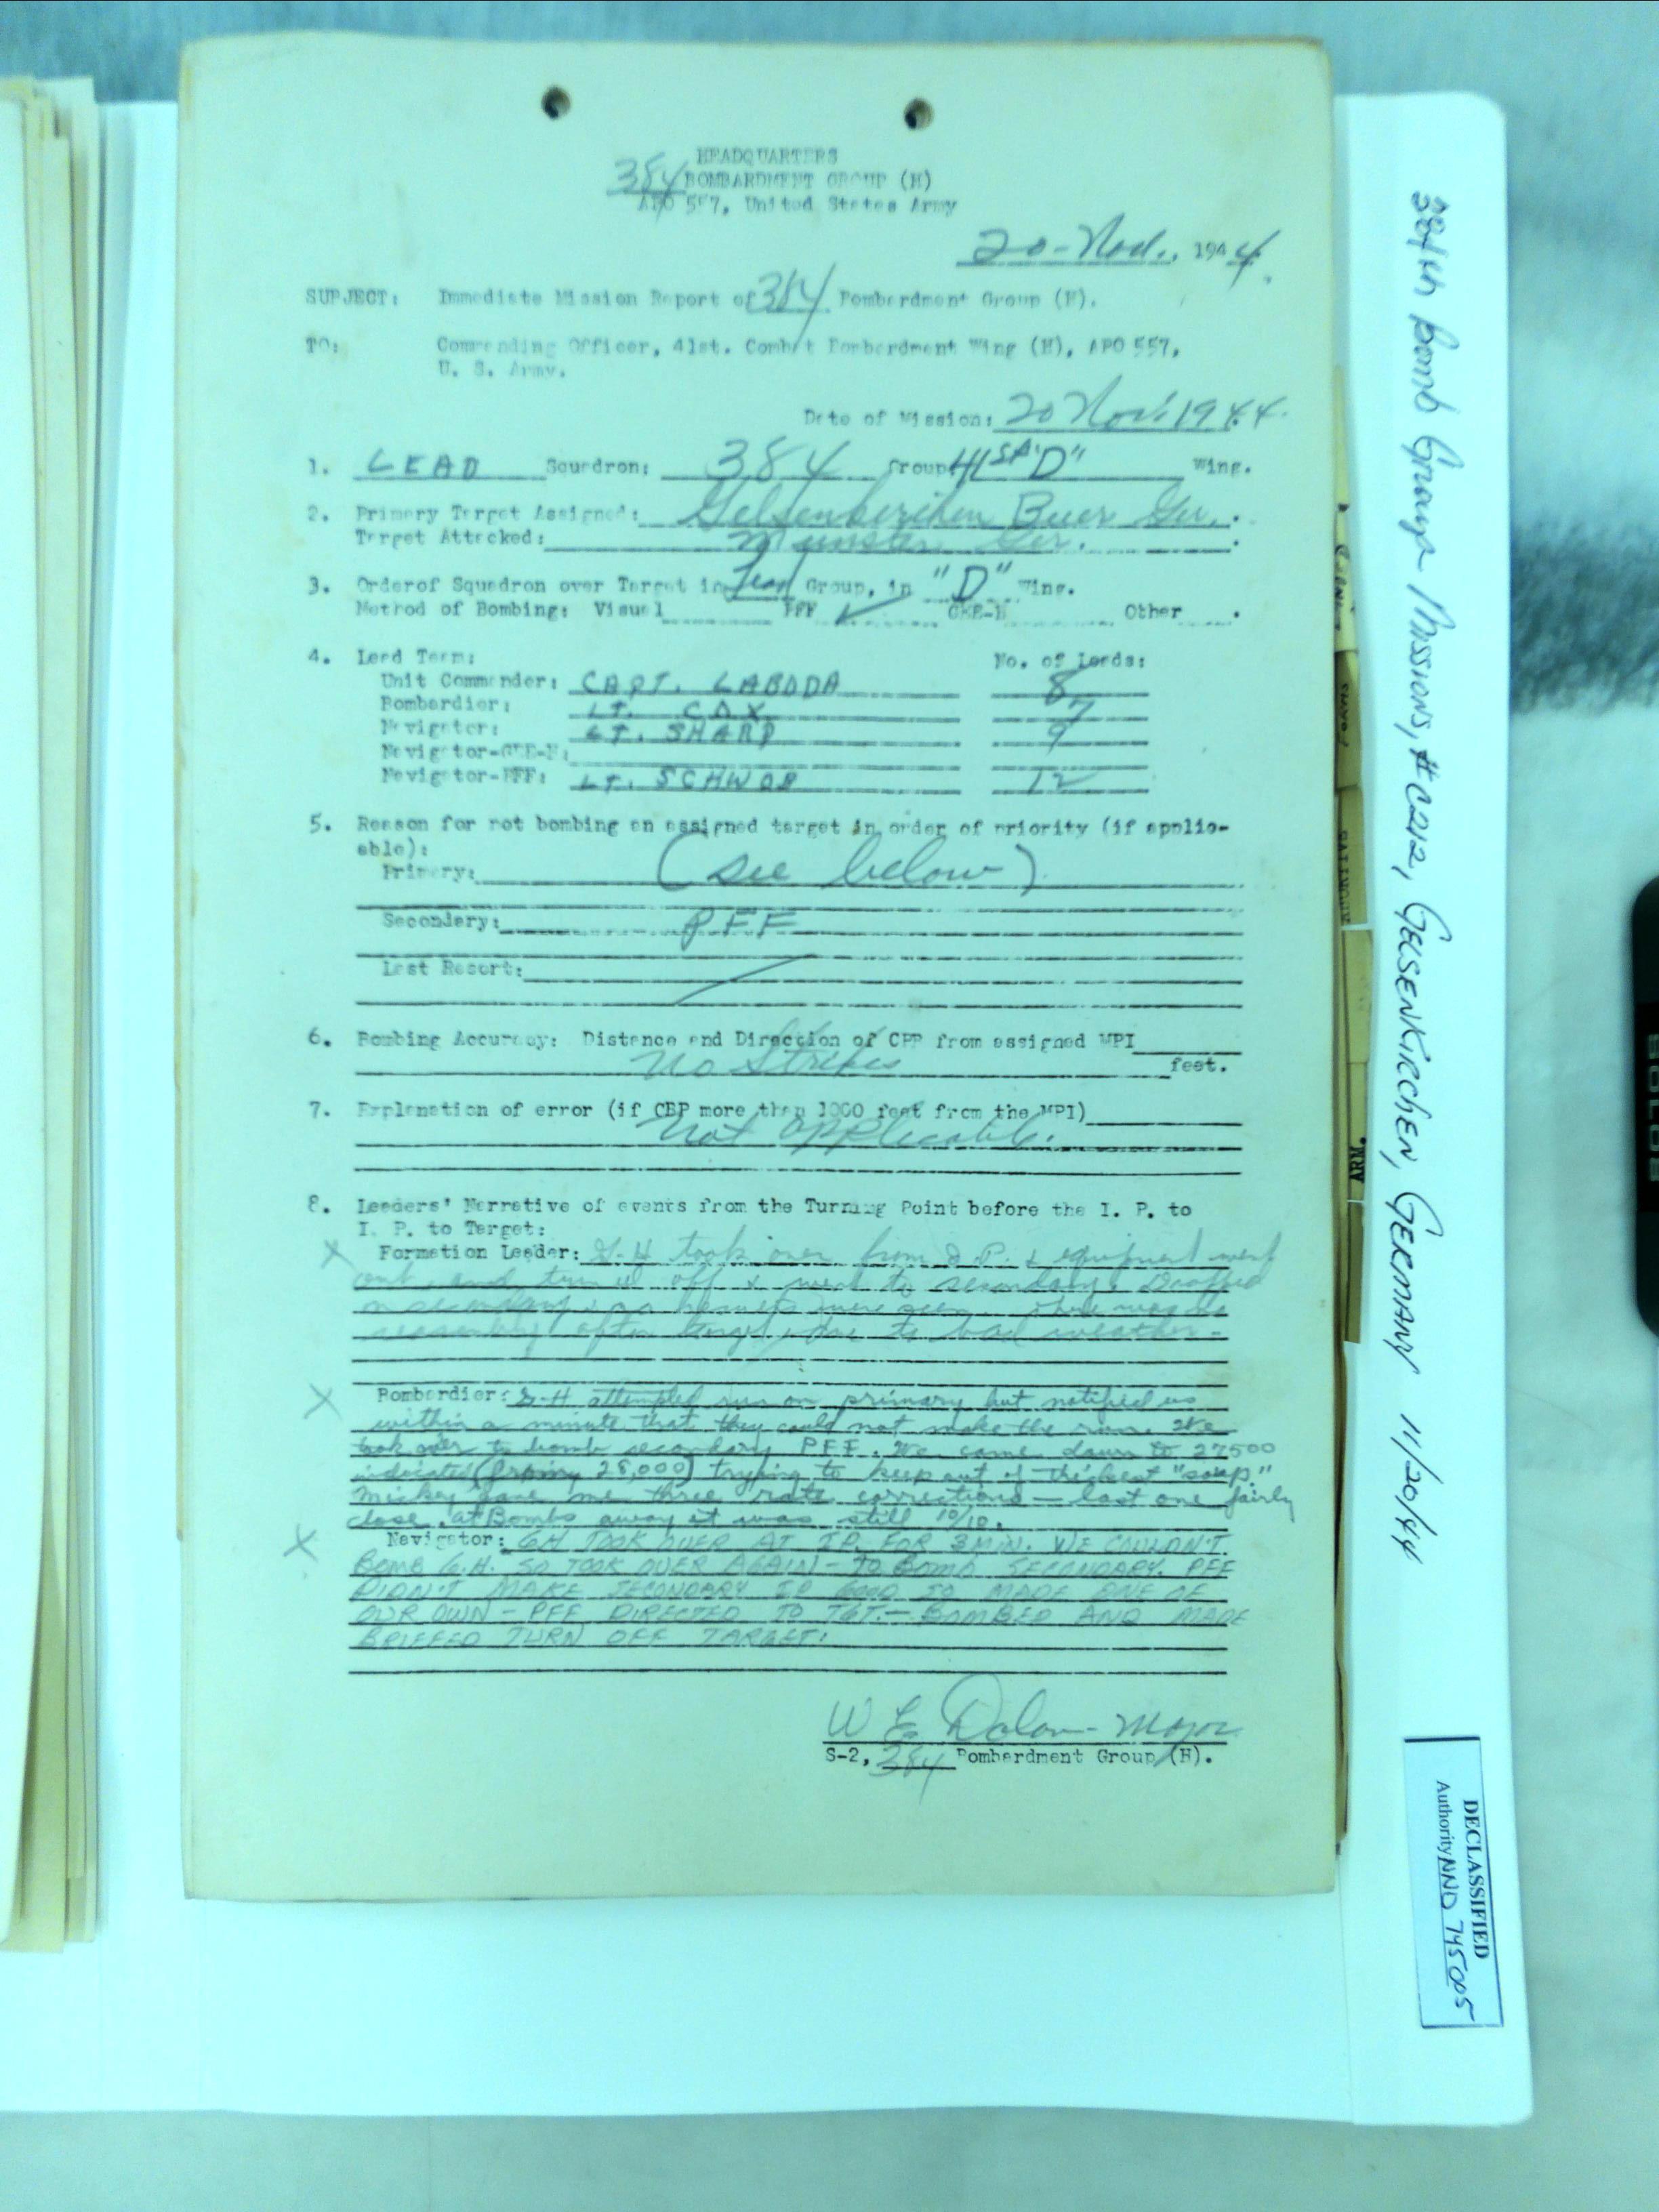 HEADQUARTERS
384 BOMBARDMENT GROUP (H)
APO 557, United States Army
20-Nov., 1944.
SUBJECT: Immediate Mission Report of 384 Bombardment Group (H).
TO: Commanding Officer, 41st. Combat Bombardment Wing (H), APO 557,
U. S. Army.
Date of Mission: 20 Nov. 1944.
1. LEAD Squadron; 384 Group 41st "D" Wing.
2. Primary Target Assigned: Gelsenkirchen Buer Ger.
Target Attacked: Munster Ger.
3. Order of Squadron over Target in Lead Group, in "D" Wing.
Method of Bombing: Visual PFF ✓ GEE-H Other .
4. Lead Team: No. of Leads:
Unit Commander: CAPT. LABODA 8
Bombardier: LT. COX 7
Navigator: LT. SHARP 9
Navigator-GEE-H:
Navigator-PFF: LT. SCHWOB 12
5. Reason for not bombing an assigned target in order of priority (if applic-
able):
Primary: (see below)
Secondary: PFF
Last Resort:
6. Bombing Accuracy: Distance and Direction of CBP from assigned MPI
No Strikes feet.
7. Explanation of error (if CBP more than 1000 feet from the MPI)
Not Applicable.
8. Leaders' Narrative of events from the Turning Point before the I. P. to
I. P. to Target:
X Formation Leader: G-H took over from I.P. & equipment went
out, and turned off & went to secondary. Dropped
on secondary & no were seen. There was no
assembly after target, due to bad weather.
X Bombardier: G-H attempted run on primary but notified us
within a minute that they could not make the run. We
took over to bomb secondary PFF. We came down to 27500
indicated (from 28,000) trying to keep out of thickest "soup."
Mickey gave me three rate corrections - last one fairly
close. at Bombs away it was still 10/10.
X Navigator: GH TOOK OVER AT IP. FOR 3 MIN. WE COULDN'T
BOMB G.H. SO TOOK OVER AGAIN - TO BOMB SECONDARY. PFF
DIDN'T MAKE SECONDARY IP GOOD SO MADE ONE OF
OUR OWN - PFF DIRECTED TO TGT. - BOMBED AND MADE
BRIEFED TURN OFF TARGET.
W E Dolan - Major
S-2, 384 Bombardment Group (H).
384th Bomb Group Missions, #C212, GELSENKIRCHEN, GERMANY 11/20/44
ARM.
DECLASSIFIED
Authority NND 745005